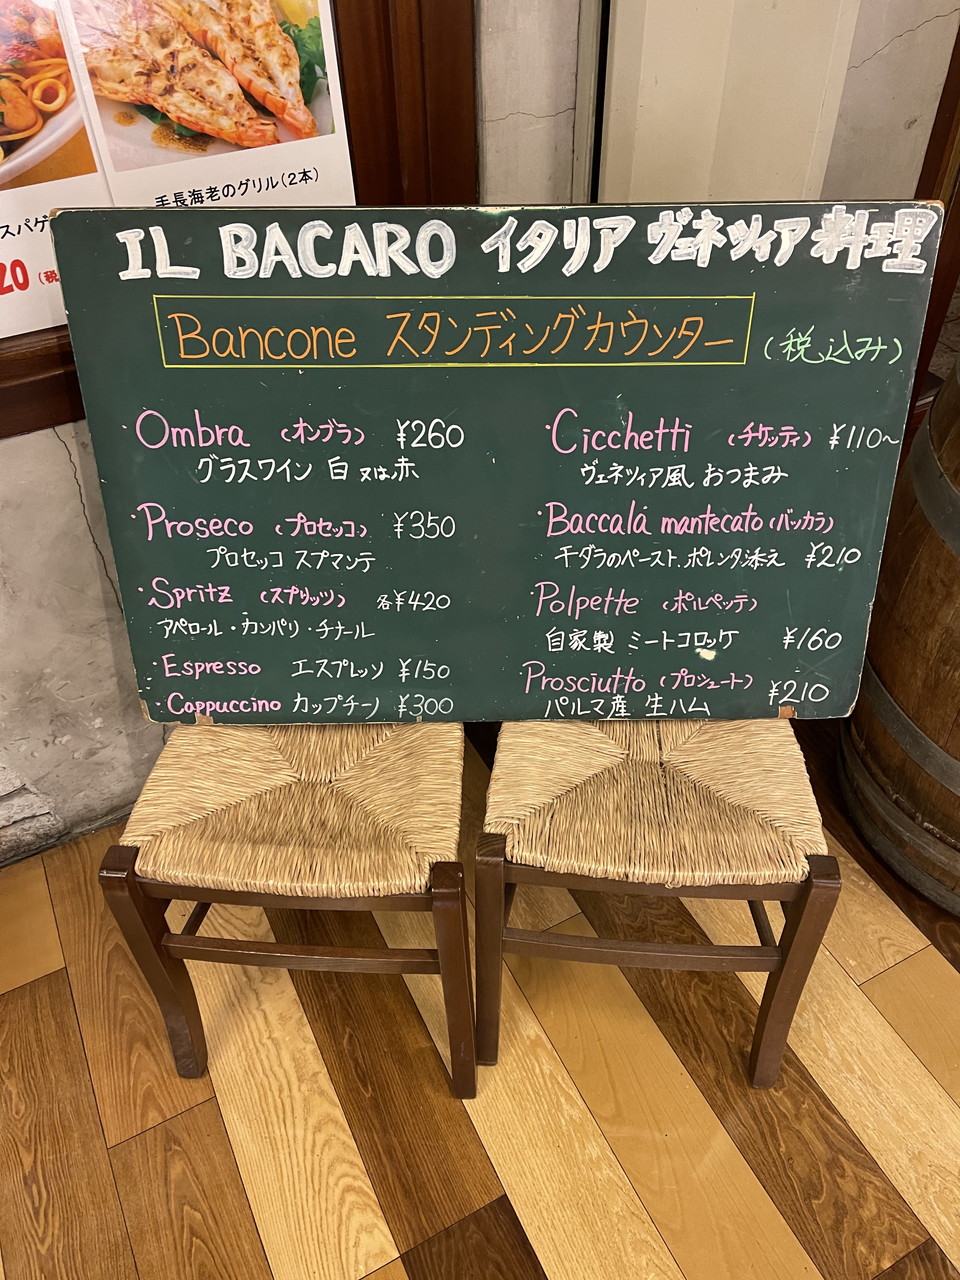 手長海老のグリル(2本)
スパゲ
20 (税
IL BACARO イタリア ヴェネツィア 料理
Bancone スタンディングカウンター (税込み)
・Ombra (オンブラ) ¥260
グラスワイン 白 又は赤
・Proseco (プロセッコ) ¥350
プロセッコ スプマンテ
・Spritz (スプリッツ) 各¥420
アペロール・カンパリ・チナール
・Espresso エスプレッソ ¥150
・Cappuccino カップチーノ ¥300
・Cicchetti (チケッティ) ¥110~
ヴェネツィア風 おつまみ
・Baccalá mantecato (バッカラ)
干ダラのペースト、ポレンタ添え ¥210
Polpette (ポルペッテ)
自家製 ミートコロッケ ¥160
Prosciutto (プロシュート) ¥210
パルマ産 生ハム